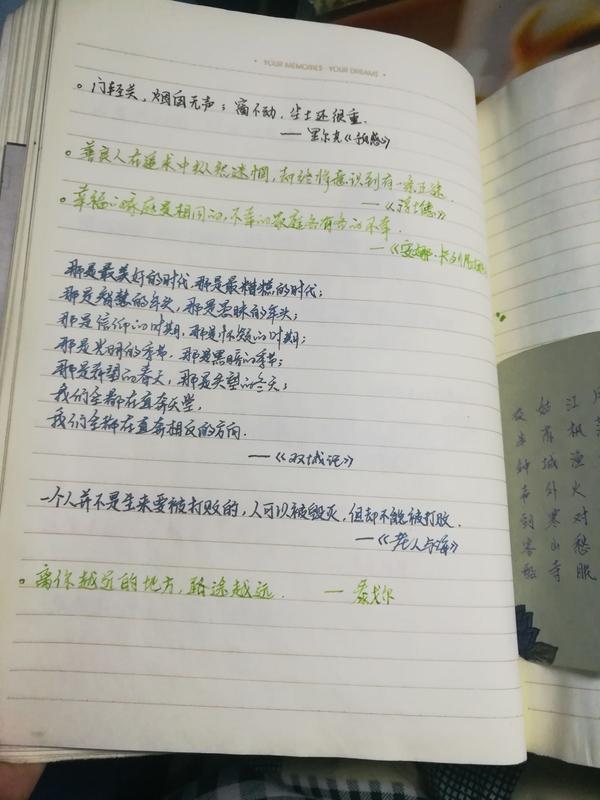 · YOUR MEMORIES · YOUR DREAMS ·
。门轻关,烟囱无声;窗不动,尘土还很重.
——里尔克《预感》
。善良人在追求中纵然迷惘,却终将意识到有一条正途.
——《浮士德》
。幸福的家庭是相同的,不幸的家庭各有各的不幸.
——《安娜·卡列尼娜》
那是最美好的时代,那是最糟糕的时代;
那是智慧的年头,那是愚昧的年头;
那是信仰的时期,那是怀疑的时期;
那是光明的季节,那是黑暗的季节;
那是希望的春天,那是失望的冬天;
我们全都在直奔天堂,
我们全都在直奔相反的方向.
——《双城记》
一个人并不是生来要被打败的,人可以被毁灭,但却不能被打败.
——《老人与海》
。离你越近的地方,路途越远. ——泰戈尔
江枫渔火对愁眠
姑苏城外寒山寺
夜半钟声到客船